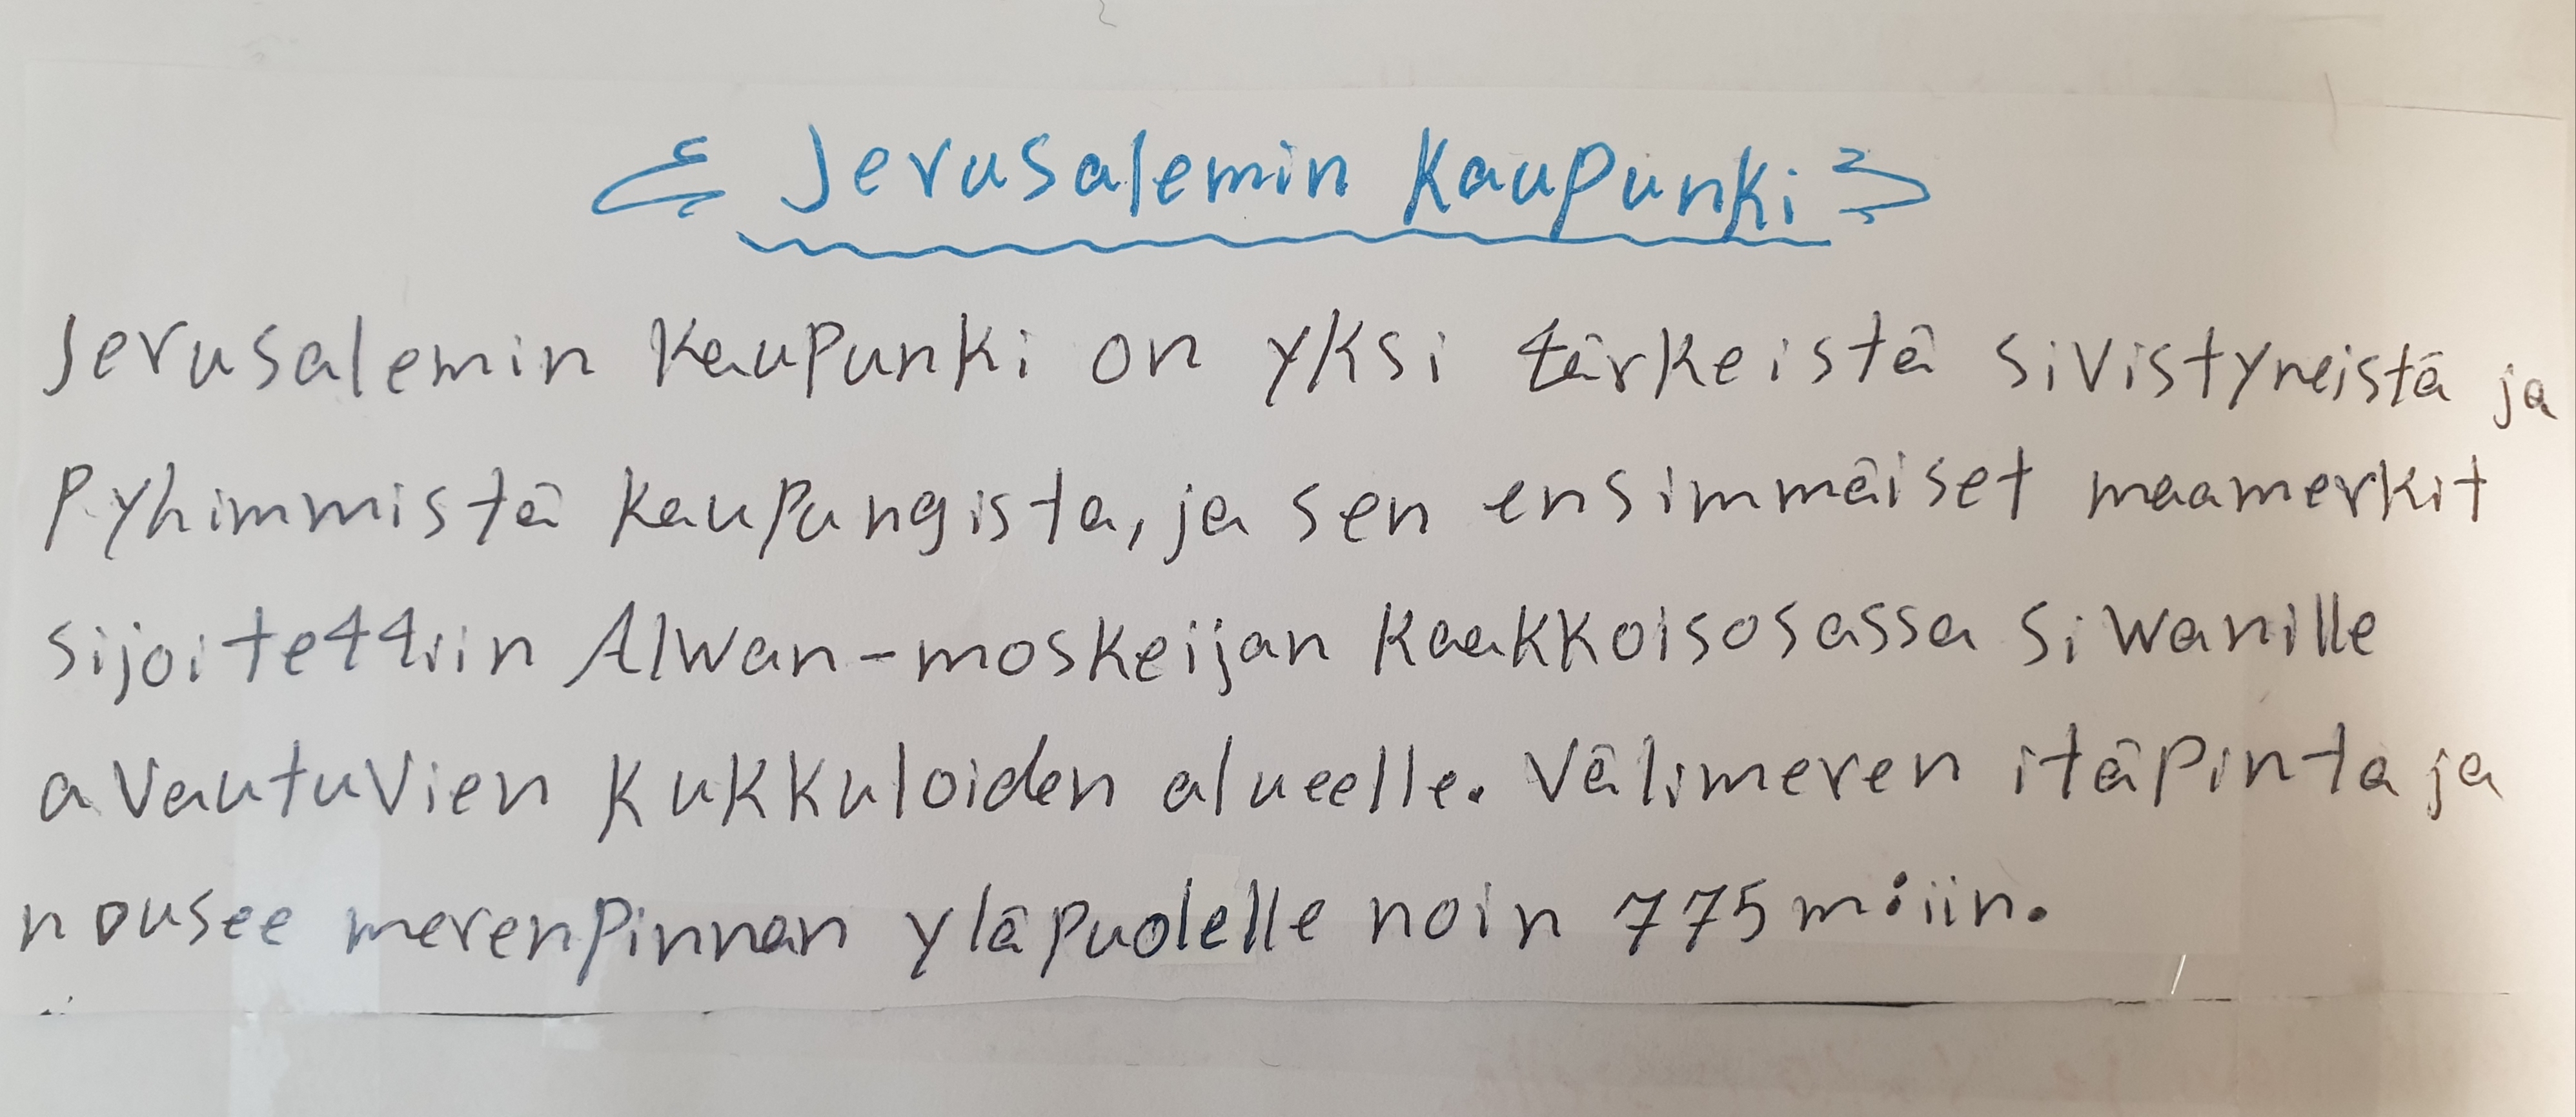 Jerusalemin kaupunki
Jerusalemin kaupunki on yksi tärkeistä sivistyneistä ja
Pyhimmistä kaupungista, ja sen ensimmäiset maamerkit
sijoitettiin Alwan-moskeijan kaakkoisosassa siwanille
avautuvien kukkuloiden alueelle. Välimeren itäpinta ja
nousee merenpinnan yläpuolelle noin 775 m:iin.